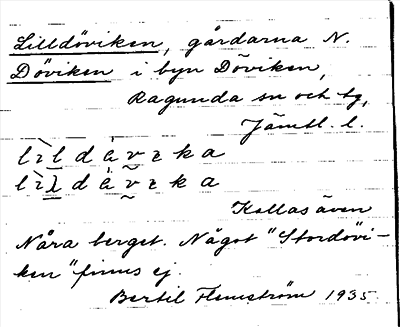 Lilldöviken, gårdarna N.
Döviken i byn Döviken,
Ragunda sn och tg,
Jämtl. l.
Kallas även
Nära berget. Något "Stordövi-
ken" finns ej.
Bertil Flemström 1935